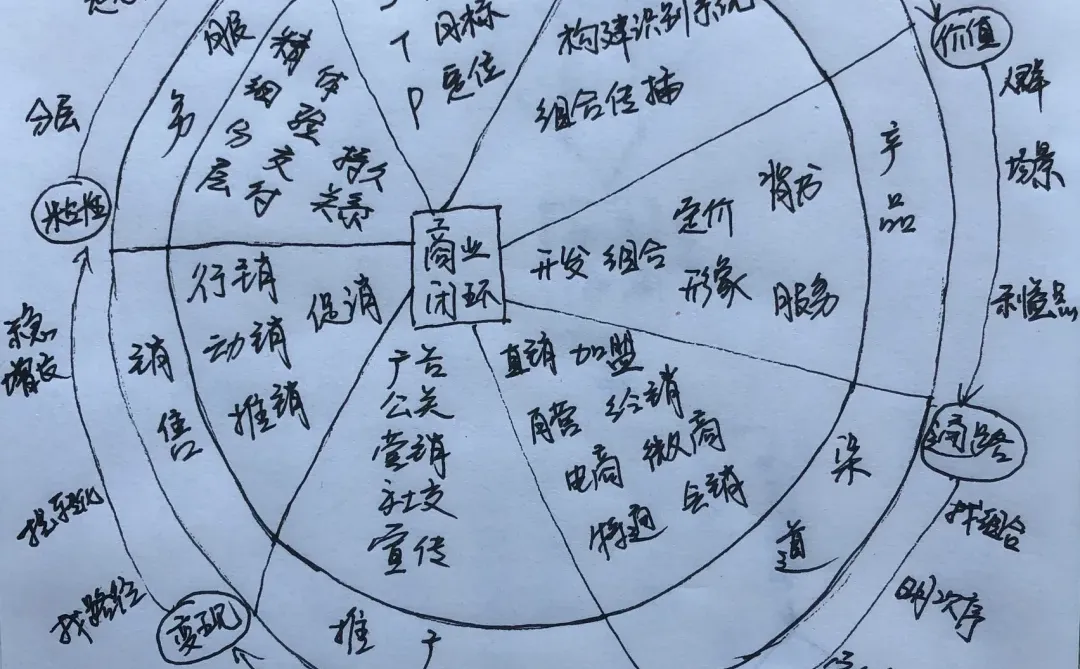 分层
粘性
稳
增长
提转化
找路径
变现
服
务
精
细
分
层
交
付
持久
关系
S
T
P
目标
定位
构建识别系统
组合传播
价值
人群
场景
利益点
产
品
背书
定价
开发 组合
形象
服务
商业
闭环
行销
促销
动销
推销
销
售
广告
公关
营销
社交
宣传
直销 加盟
电商 微商
会销
特通
渠
道
通路
找组合
明次序
推
广